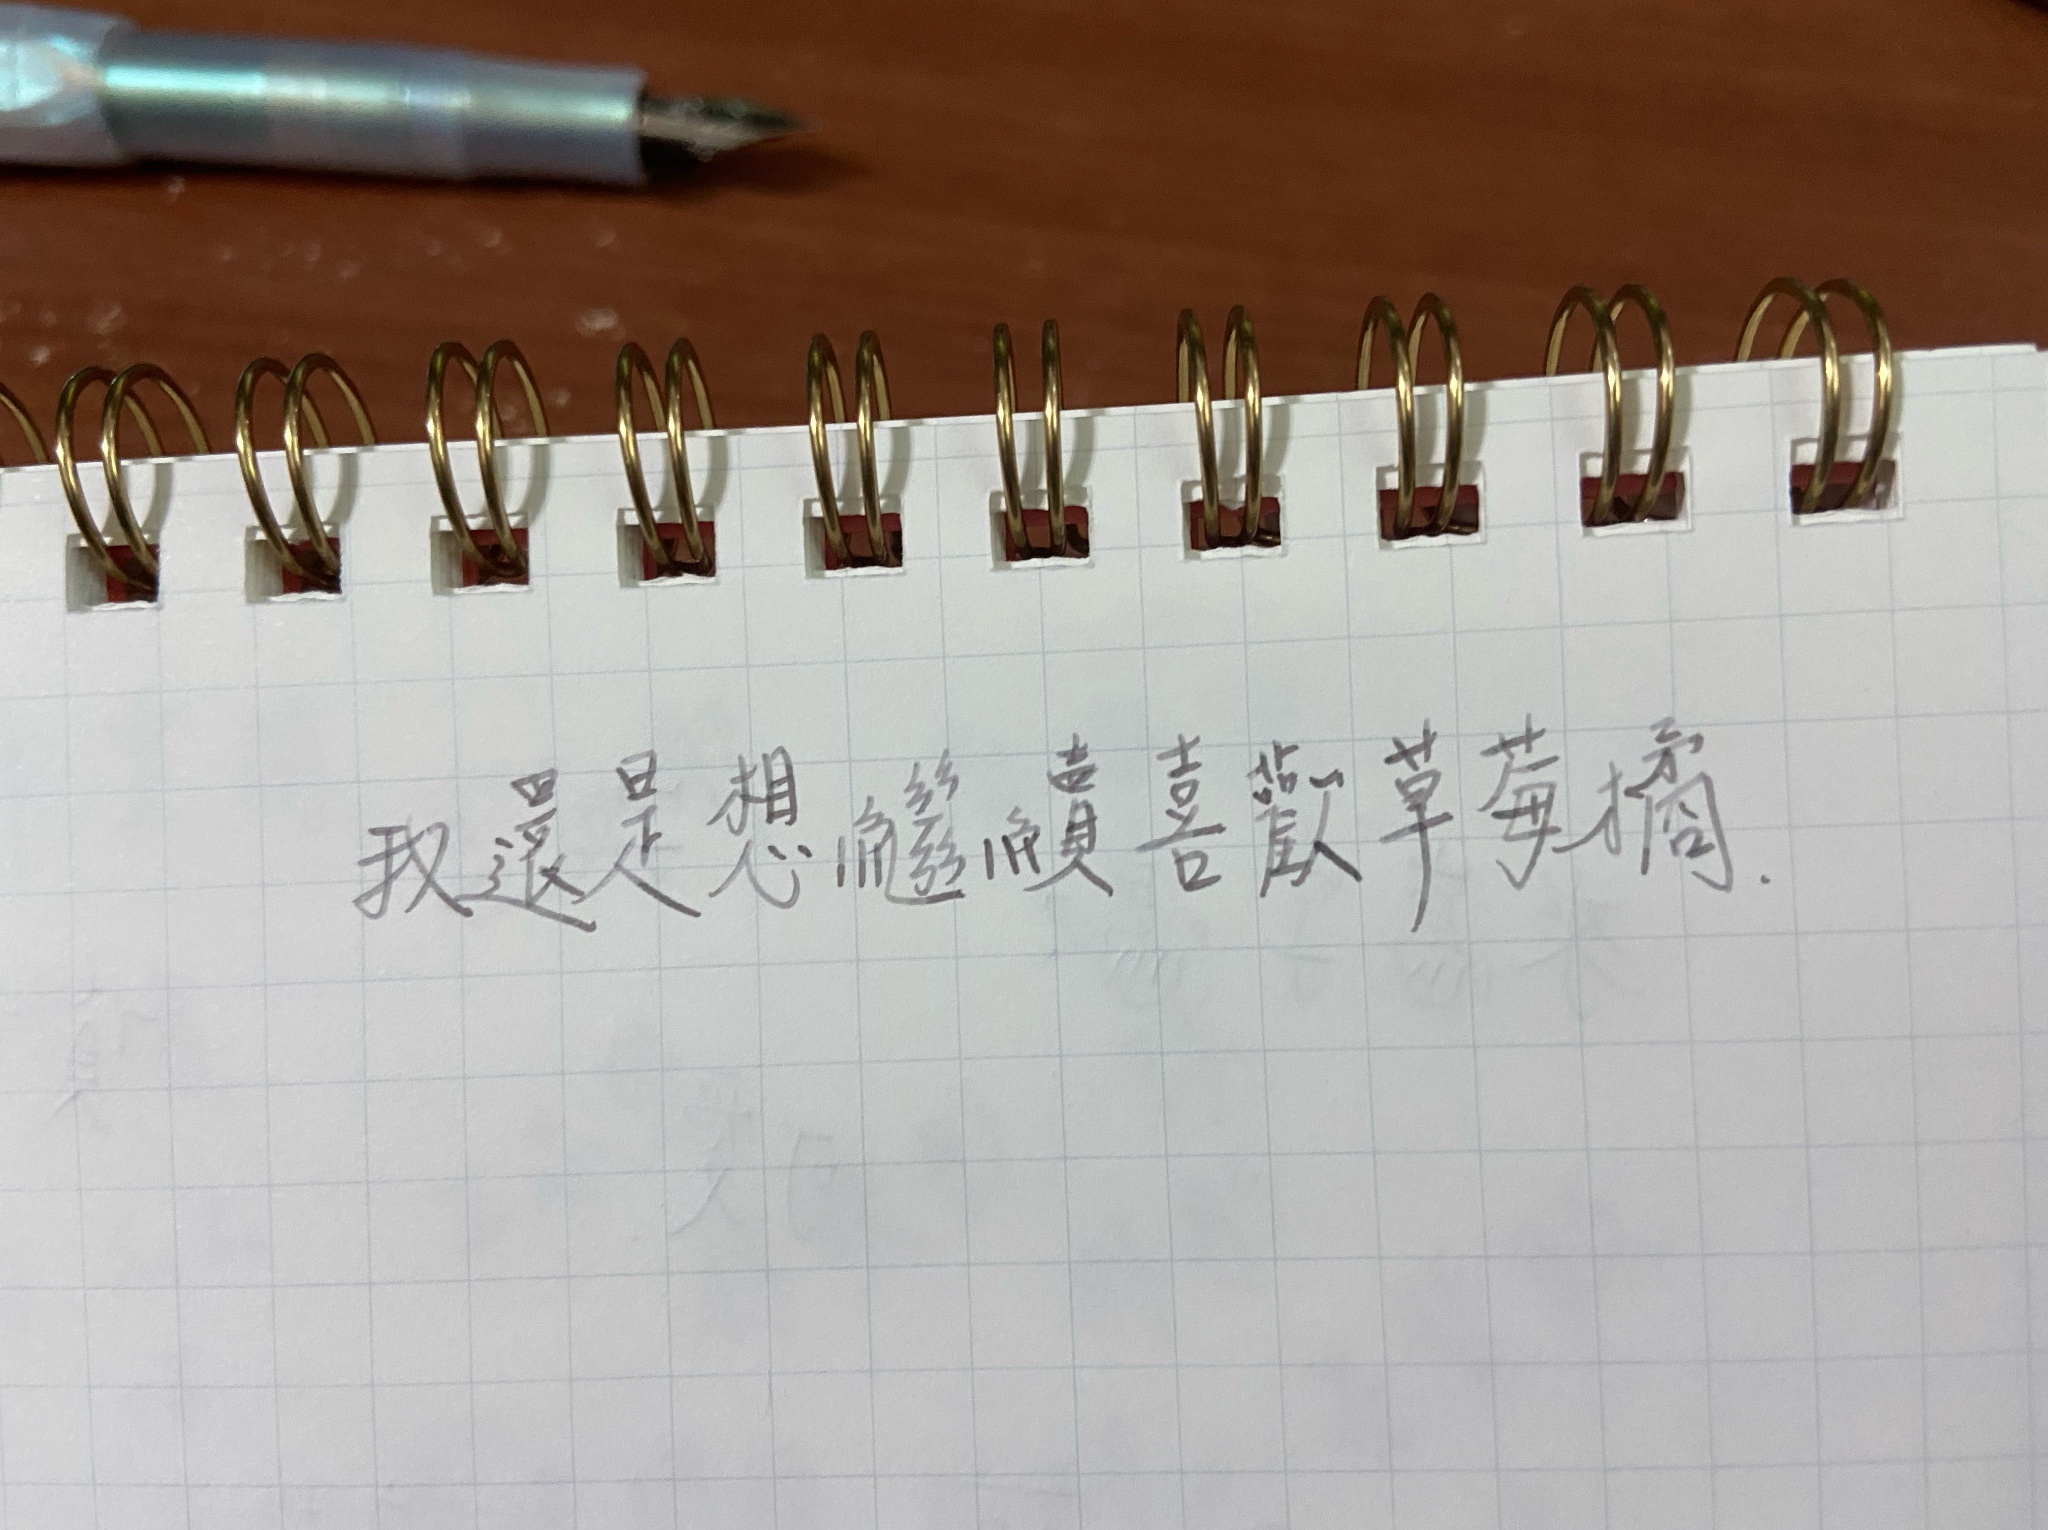 我還是想繼續喜歡草莓摘.